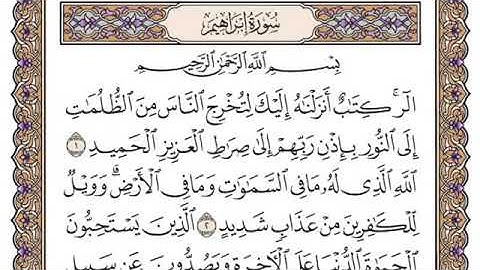 سُورَةُ إِبْرَاهِيمَ
بِسْمِ ٱللَّهِ ٱلرَّحْمَٰنِ ٱلرَّحِيمِ
الٓرۚ كِتَٰبٌ أَنزَلْنَٰهُ إِلَيْكَ لِتُخْرِجَ ٱلنَّاسَ مِنَ ٱلظُّلُمَٰتِ
إِلَى ٱلنُّورِ بِإِذْنِ رَبِّهِمْ إِلَىٰ صِرَٰطِ ٱلْعَزِيزِ ٱلْحَمِيدِ ١
ٱللَّهِ ٱلَّذِى لَهُۥ مَا فِى ٱلسَّمَٰوَٰتِ وَمَا فِى ٱلْأَرْضِۗ وَوَيْلٌ
لِّلْكَٰفِرِينَ مِنْ عَذَابٍ شَدِيدٍ ٢ ٱلَّذِينَ يَسْتَحِبُّونَ
ٱلْحَيَوٰةَ ٱلدُّنْيَا عَلَى ٱلْأَخِرَةِ وَيَصُدُّونَ عَن سَبِيلِ